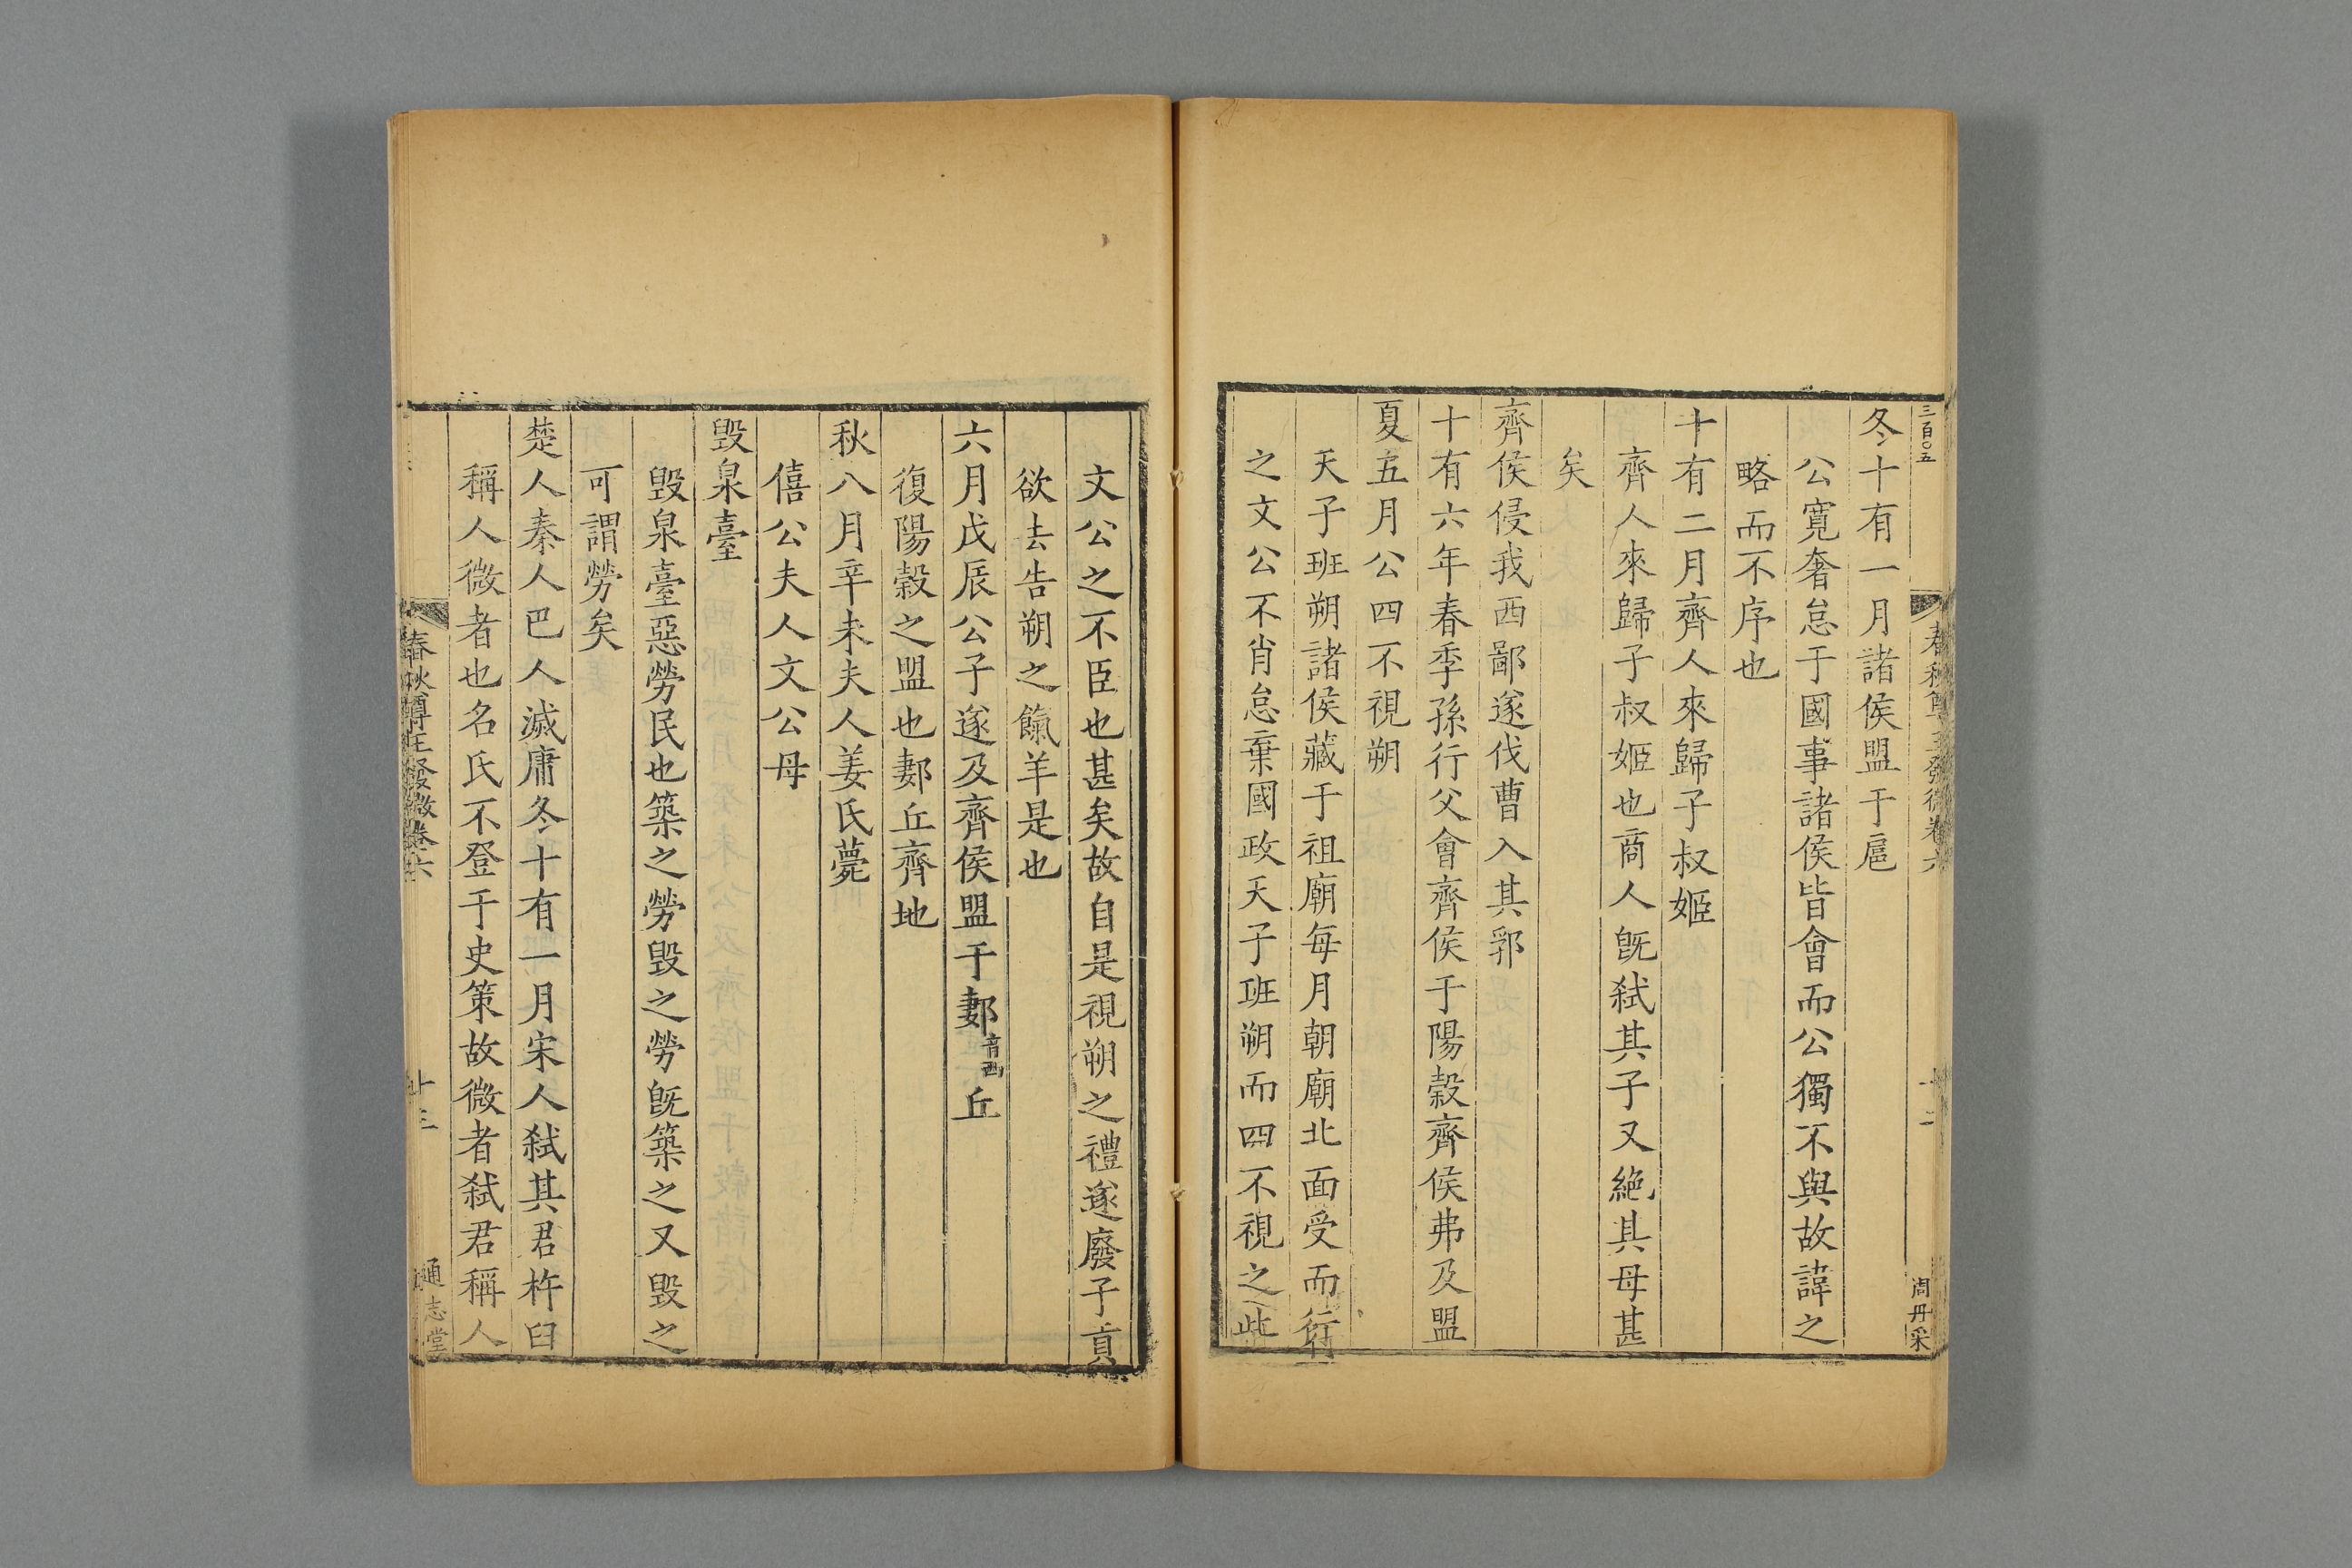 三百〇五
春秋尊王發微卷六
十二
周丹采
冬十有一月諸侯盟于扈
公寛奢怠于國事諸侯皆會而公獨不與故諱之
略而不序也
十有二月齊人來歸子叔姬
齊人來歸子叔姬也商人旣弑其子又絶其母甚
矣
齊侯侵我西鄙遂伐曹入其郛
十有六年春季孫行父會齊侯于陽穀齊侯弗及盟
夏五月公四不視朔
天子班朔諸侯藏于祖廟每月朝廟北面受而行
之文公不肖怠棄國政天子班朔而四不視之此
文公之不臣也甚矣故自是視朔之禮遂廢子貢
欲去告朔之餼羊是也
六月戊辰公子遂及齊侯盟于郪音西丘
復陽穀之盟也郪丘齊地
秋八月辛未夫人姜氏薨
僖公夫人文公母
毀泉臺
毀泉臺惡勞民也築之勞毀之勞旣築之又毀之
可謂勞矣
楚人秦人巴人滅庸冬十有一月宋人弑其君杵臼
稱人微者也名氏不登于史策故微者弑君稱人
春秋尊王發微卷六
十三
通志堂